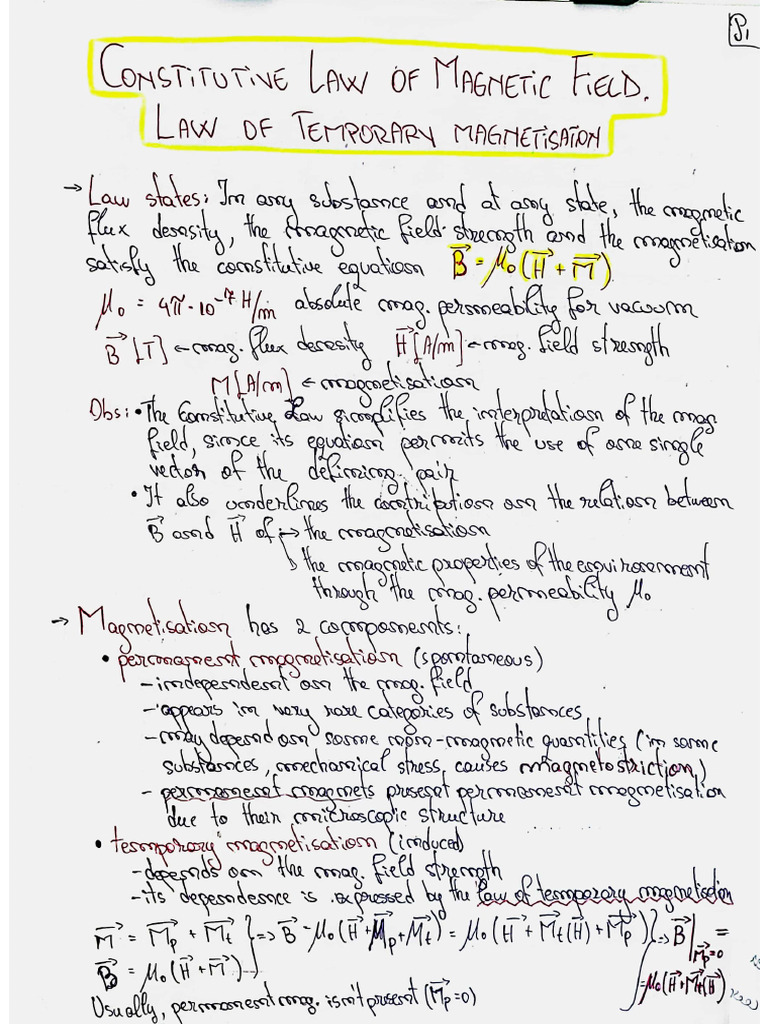 P1
CONSTITUTIVE LAW OF MAGNETIC FIELD.
LAW OF TEMPORARY MAGNETISATION
→ Law states: In any substance and at any state, the magnetic
flux density, the magnetic field strength and the magnetisation
satisfy the constitutive equation B⃗ = μ₀(H⃗ + M⃗)
μ₀ = 4π·10⁻⁷ H/m absolute mag. permeability for vacuum
B⃗ [T] ← mag. flux density H⃗ [A/m] ← mag. field strength
M [A/m] ← magnetisation
Obs: • The Constitutive Law simplifies the interpretation of the mag
field, since its equation permits the use of one single
vector of the defining pair
• It also underlines the contribution on the relation between
B⃗ and H⃗ of: → the magnetisation
↳ the magnetic properties of the environment
through the mag. permeability μ₀
→ Magnetisation has 2 components:
• permanent magnetisation (spontaneous)
- independent on the mag. field
- appears in very rare categories of substances
- may depend on some non-magnetic quantities (in some
substances, mechanical stress, causes magnetostriction)
- permanent magnets present permanent magnetisation
due to their microscopic structure
• temporary magnetisation (induced)
- depends on the mag. field strength
- its dependence is expressed by the law of temporary magnetisation
M⃗ = M⃗p + M⃗t } => B⃗ = μ₀(H⃗ + M⃗p + M⃗t) = μ₀(H⃗ + M⃗t(H⃗) + M⃗p) } => B⃗|M⃗p=0 =
B⃗ = μ₀(H⃗ + M⃗)
= μ₀(H⃗ + M⃗t(H⃗))
Usually, permanent mag. isn't present (M⃗p = 0)